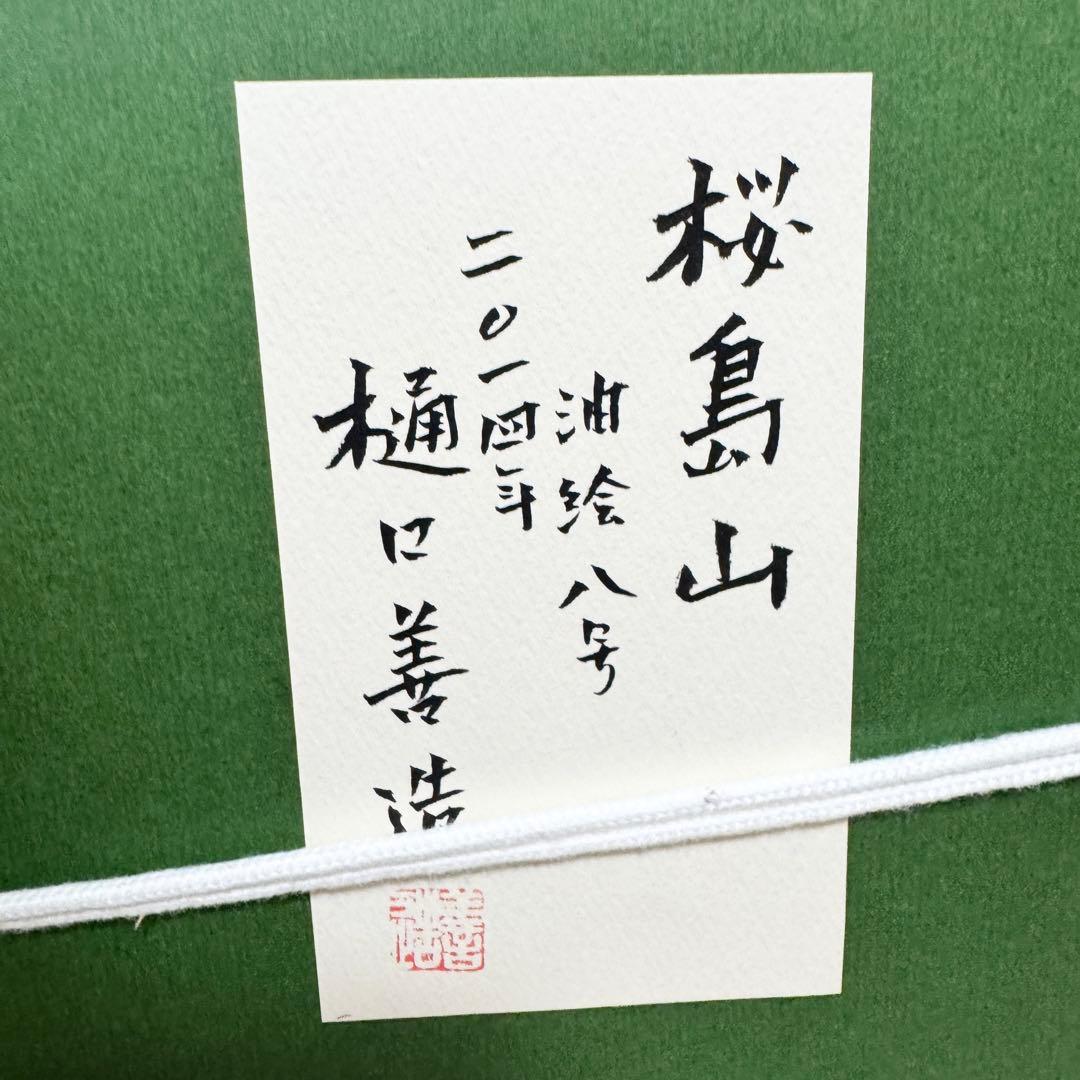 桜島山
油絵 八号
二〇一四年
樋口善造